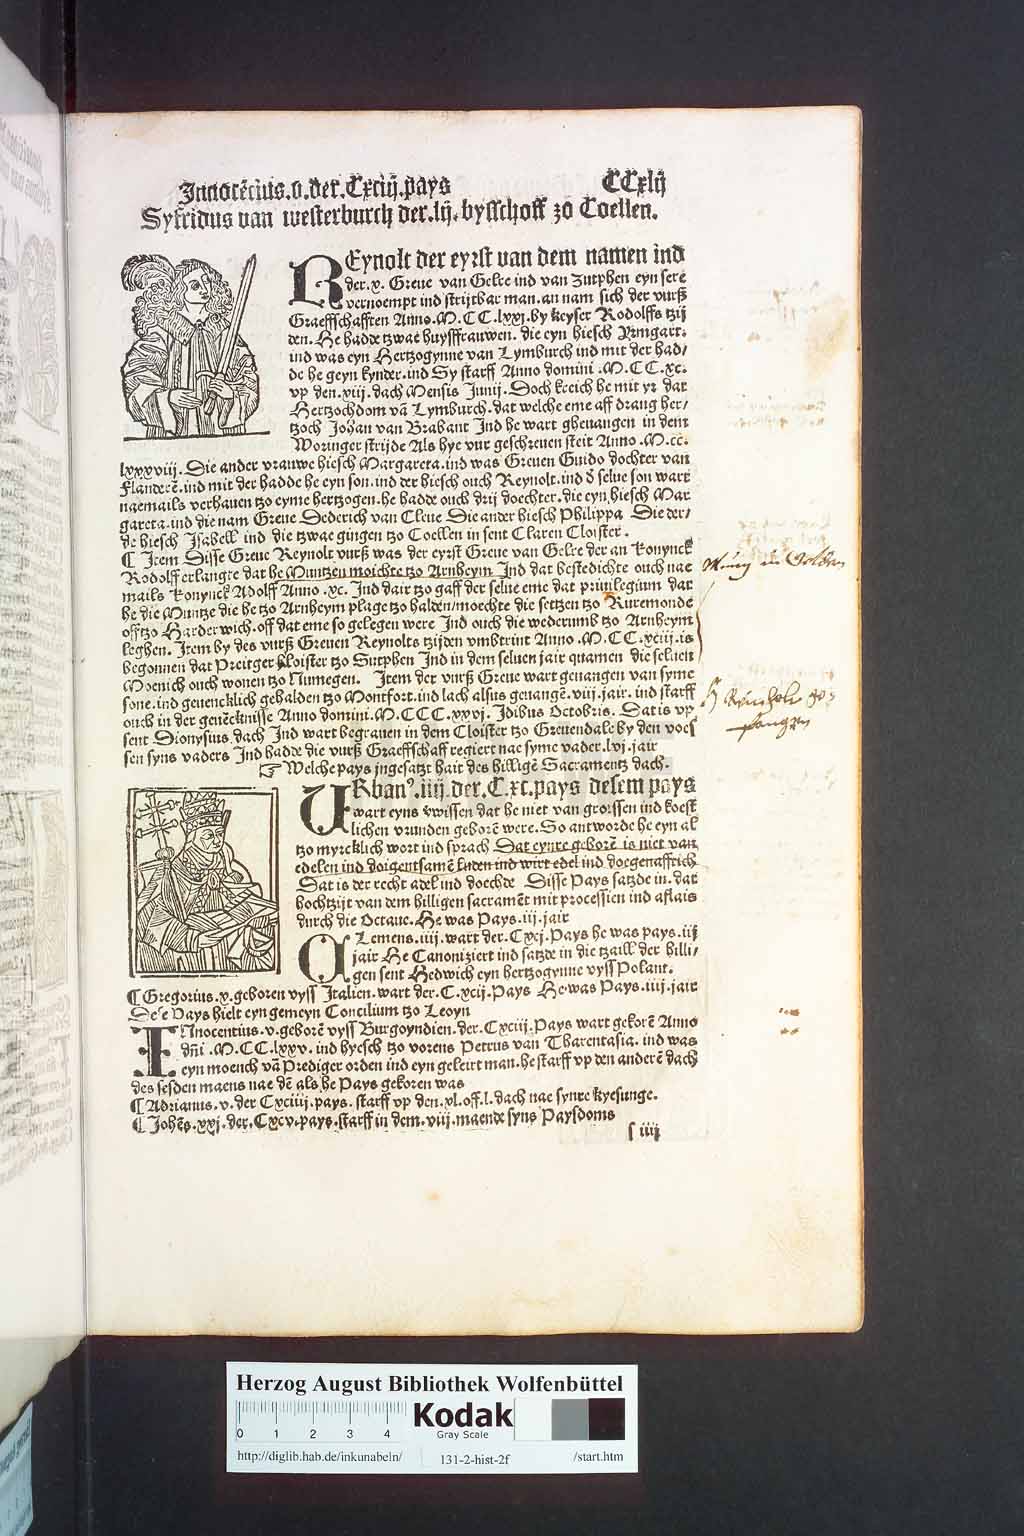 Innocẽcius.v.der.Cxciij.pays CCxlij
Syfridus van westerburch der.lij.bysschoff zo Coellen.
REynolt der eyrst van dem namen ind
der.x. Greue van Gelre ind van Zutphen eyn sere
vernoempt ind strijtbar man.an nam sich der vurß
Graeffschafften Anno.M.CC.lxxj.by keyser Rodolffs tzij
den. He hadde tzwae huysffrauwen. die eyn hiesch Yrmgart.
ind was eyn Hertzogynne van Lymburch ind mit der had/
de he geyn kynder.ind Sy starff Anno domini.M.CC.xc.
vp den.viij.dach Mensis Junij.Doch kreich he mit yr dat
Hertzochdom vã Lymburch.dat welche eme aff drang her/
tzoch Johan van Brabant Ind he wart gheuangen in dem
Woringer strijde Als hye vur geschreuen steit Anno.M.cc.
lxxxviij. Die ander vrauwe hiesch Margareta.ind was Greuen Guido dochter van
Flanderẽ.ind mit der hadde he eyn son.ind der hiesch ouch Reynolt.ind d selue son wart
naemails verhauen tzo eyme hertzogen.he hadde ouch drij doechter.die eyn hiesch Mar
gareta.ind die nam Greue Dederich van Cleue Die ander hiesch Philippa Die der/
de hiesch Isabell ind die tzwae gingen tzo Coellen in sent Claren Cloister.
¶ Item Disse Greue Reynolt vurß was der eyrst Greue van Gelre der an Konynck
Rodolff erlangte dat he Muntzen moichte tzo Arnheym Ind dat bestedichte ouch nae
mails Konynck Adolff Anno.xc. Ind dair tzo gaff der selue eme dat priuilegium dat
he die Muntze die he tzo Arnheym plage tzo halden/moechte die settzen tzo Ruremonde
off tzo Harderwich.off dat eme so gelegen were Ind ouch die wederumb tzo Arnheym
leghen. Item by des vurß Greuen Reynolts tzijden vmbtrint Anno.M.CC.xciij.is
begonnen dat Preitger kloister tzo Sutphen Ind in dem seluen jair quamen die seluen
Moenich ouch wonen tzo Numegen. Item der vurß Greue wart geuangen van syme
sone.ind geuencklich gehalden tzo Montfort.ind lach alsus geuangẽ.viij.jair.ind starff
ouch in der genẽcknisse Anno domini.M.CCC.xxvj.Idibus Octobris. Dat is vp
sent Dionysius dach Ind wart begrauen in dem Cloister tzo Greuendale by den voes
sen syns vaders Ind hadde die vurß Graeffschaff regiert nae syme vader.lvj.jair
☞ Welche pays jngesatzt hait des hilligẽ Sacramentz dach.
URban⁹.iiij.der.C.xc.pays desem pays
wart eyns vwissen dat he niet van groissen ind koest
lichen vrunden geborẽ were.So antworde he eyn al
tzo myrcklich wort ind sprach Dat eynre geborẽ is niet van
edelen ind doigentsamẽ luden ind wirt edel ind doegenafftich
Dat is der recht adel ind doechde Disse Pays satzde in.dat
hochtzijt van dem hilligen sacramẽt mit processien ind aflais
durch die Octaue. He was Pays.iij.jair
CLemens.iiij.wart der.Cxcj.Pays he was pays.iij
jair He Canoniziert ind satzde in die tzaill der hilli/
gen sent Hedwich eyn hertzogynne vyss Polant.
¶ Gregorius.x.geboren vyss Italien.wart der.C.xcij.Pays He was Pays.iiij.jair
Dese Pays hielt eyn gemeyn Concilium tzo Leoyn
INnocentius.v.geborẽ vyss Burgoyndien.der.Cxciij.Pays wart gekorẽ Anno
dñi.M.CC.lxxv.ind hyesch tzo vorens Petrus van Tharentasia.ind was
eyn moench vã Prediger orden ind eyn geleirt man.he starff vp den anderẽ dach
des sesden maens nae dẽ als he Pays gekoren was
¶ Adrianus.v.der Cxciiij.pays.starff vp den.xl.off.l.dach nae synre kyesunge.
¶ Johẽs.xxj.der.Cxcv.pays.starff in dem.viij.maende syns Paysdoms
s iiij
Herzog August Bibliothek Wolfenbüttel
0 1 2 3 4
Kodak
Gray Scale
http://diglib.hab.de/inkunabeln/ 131-2-hist-2f /start.htm